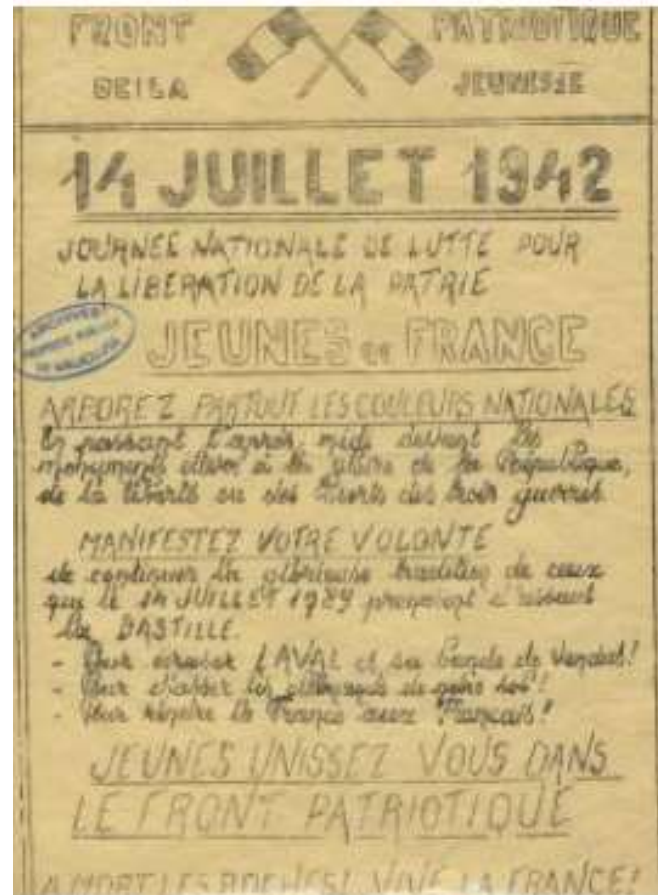 FRONT PATRIOTIQUE
DE LA JEUNESSE
14 JUILLET 1942
JOURNÉE NATIONALE DE LUTTE POUR
LA LIBERATION DE LA PATRIE
ARCHIVES
JEUNES DE FRANCE
ARBOREZ PARTOUT LES COULEURS NATIONALES
En passant l'après midi devant les
monuments élevés à la gloire de la République,
de la liberté ou des Morts des trois guerres.
MANIFESTEZ VOTRE VOLONTE
de continuer la glorieuse tradition de ceux
qui le 14 JUILLET 1789 prenaient d'assaut
la BASTILLE.
- Pour écraser LAVAL et sa bande de vendus!
- Pour chasser les allemands de notre sol!
- Pour rendre la France aux Français!
JEUNES UNISSEZ VOUS DANS
LE FRONT PATRIOTIQUE
A MORT LES BOCHES! VIVE LA FRANCE!